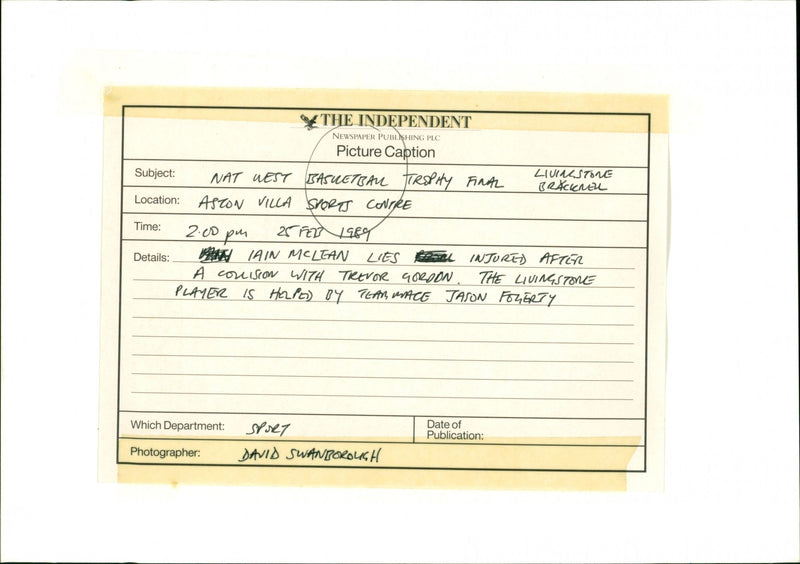 THE INDEPENDENT
NEWSPAPER PUBLISHING PLC
Picture Caption
Subject: NAT WEST BASKETBALL TROPHY FINAL LIVINGSTONE
BRACKNELL
Location: ASTON VILLA SPORTS CENTRE
Time: 2.00 pm 25 FEB 1989
Details: IAIN MCLEAN LIES INJURED AFTER
A COLLISION WITH TREVOR GORDON. THE LIVINGSTONE
PLAYER IS HELPED BY TEAM MATE JASON FOGERTY
Which Department: SPORT
Date of
Publication:
Photographer: DAVID SWANBOROUGH